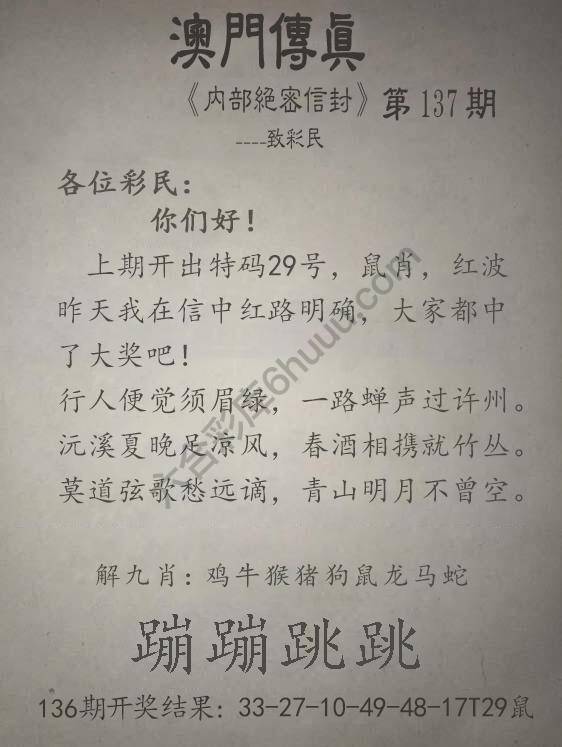 澳門傳真
《内部絕密信封》第137期
----致彩民
各位彩民：
你们好！
上期开出特码29号，鼠肖，红波
昨天我在信中红路明确，大家都中
了大奖吧！
行人便觉须眉绿，一路蝉声过许州。
沅溪夏晚足凉风，春酒相携就竹丛。
莫道弦歌愁远谪，青山明月不曾空。
解九肖：鸡牛猴猪狗鼠龙马蛇
蹦蹦跳跳
136期开奖结果：33-27-10-49-48-17T29鼠
六合彩库6huuu.com